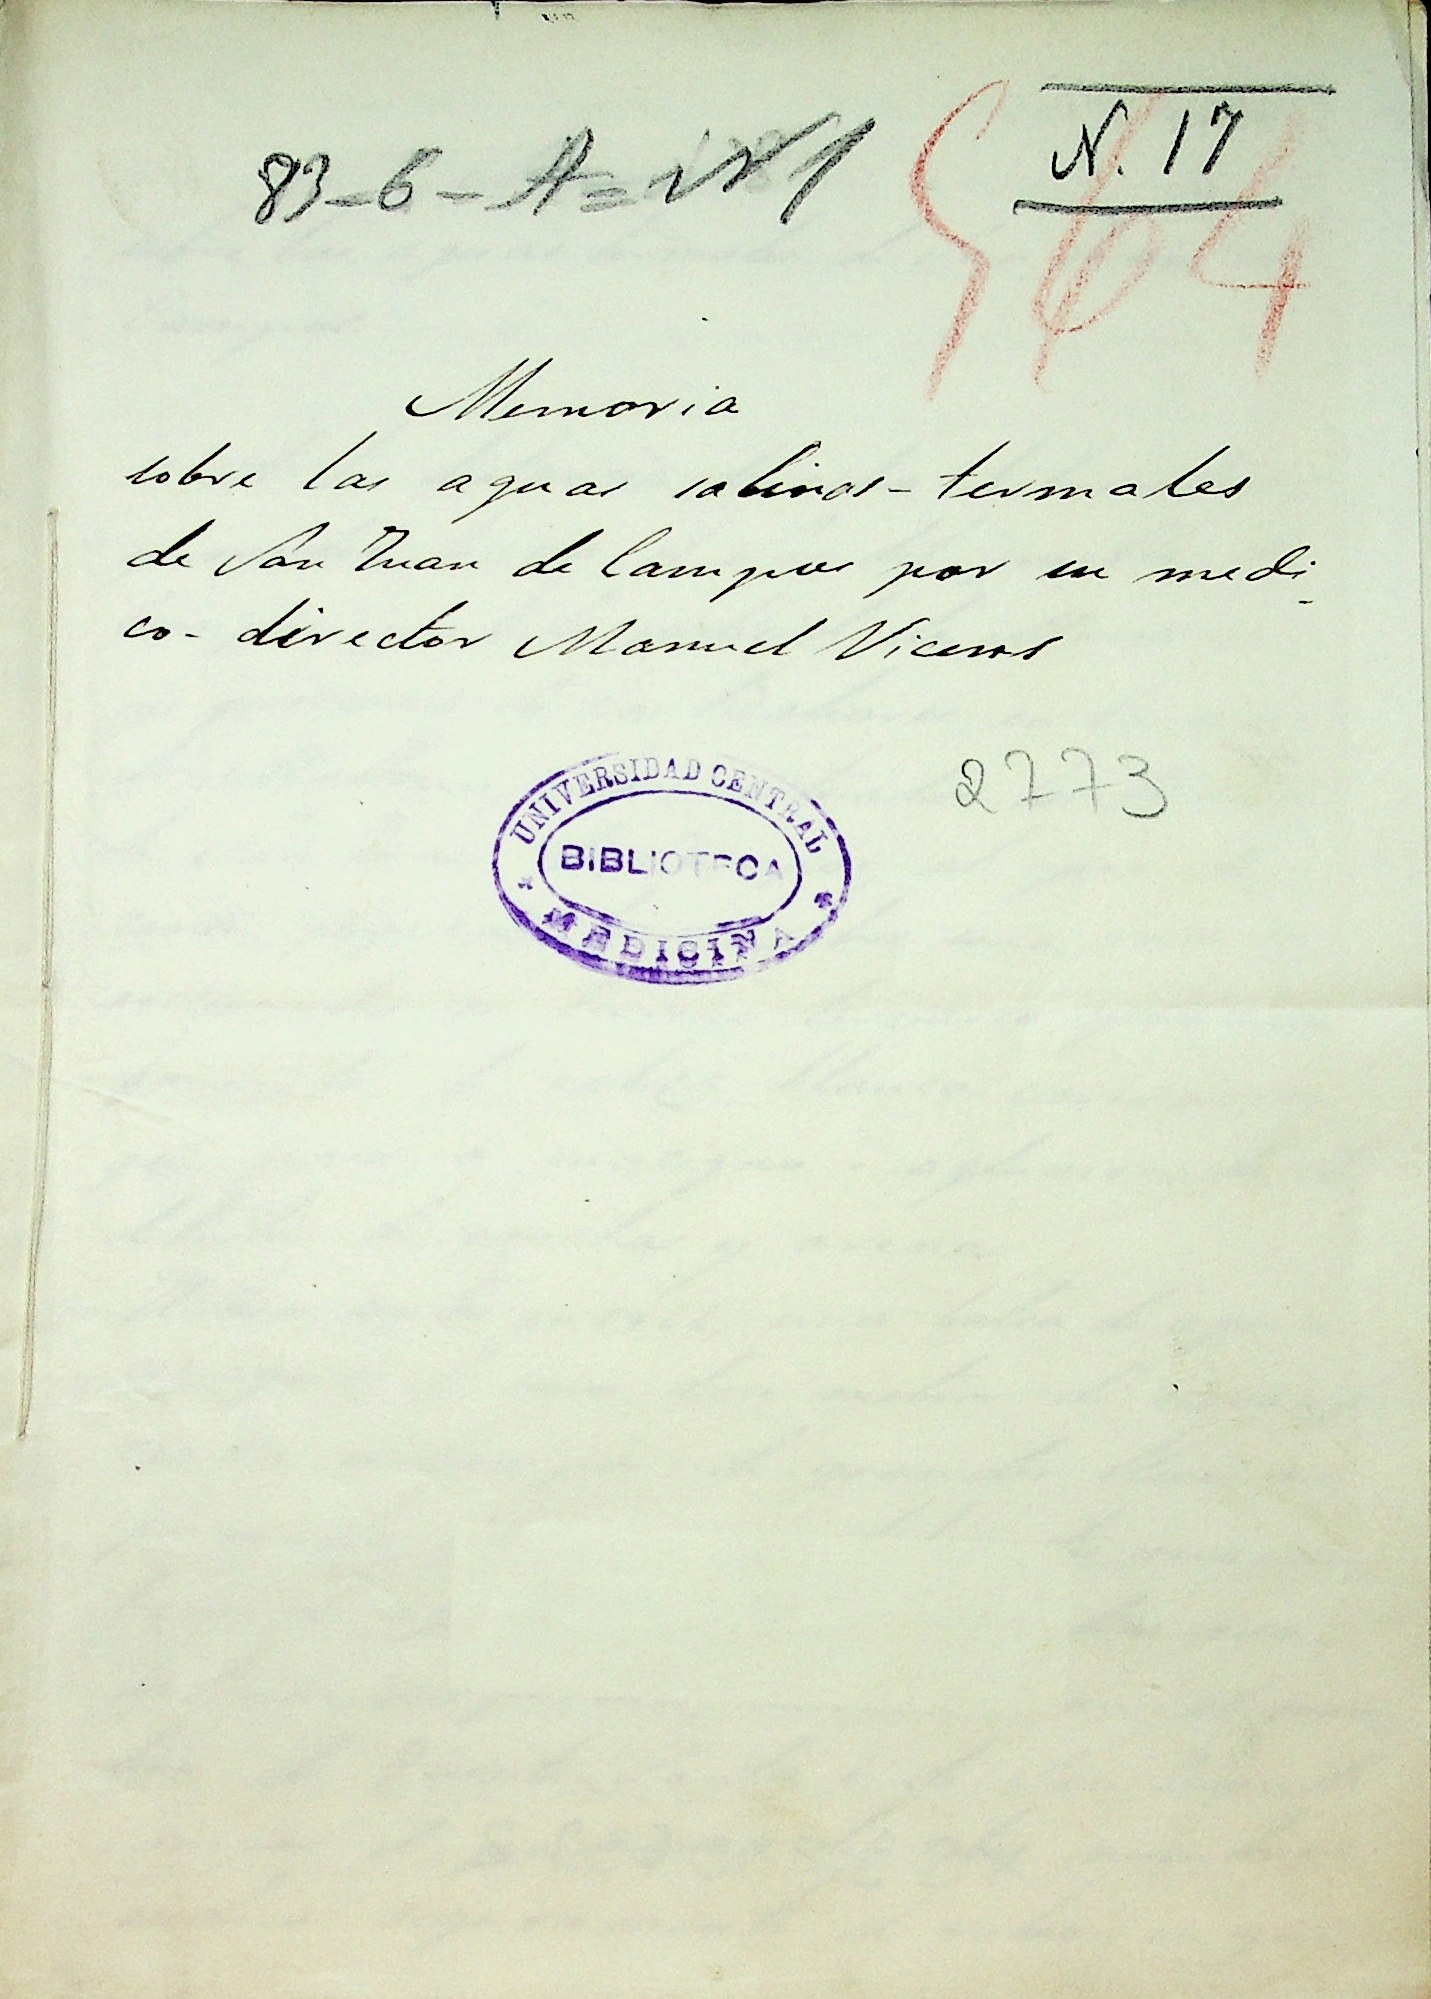 N. 17
83-6-A=Nº1
564
Memoria
sobre las aguas salinas-termales
de San Juan de Campos por su medi-
co-director Manuel Vicens
2773
UNIVERSIDAD CENTRAL
BIBLIOTECA
MEDICINA